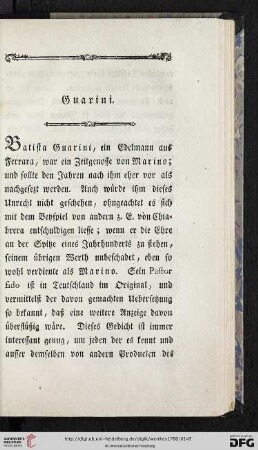 Guarini.
Batista Guarini, ein Edelmann aus
Ferrara, war ein Zeitgenosse von Marino;
und sollte den Jahren nach ihm eher vor als
nachgesezt werden. Auch würde ihm dieses
Unrecht nicht geschehen, ohngeachtet es sich
mit dem Beyspiel von andern z. E. von Chia-
brera entschuldigen liesse; wenn er die Ehre
an der Spitze eines Jahrhunderts zu stehen,
seinem übrigen Werth unbeschadet, eben so
wohl verdiente als Marino. Sein Pastor
fido ist in Teutschland im Original, und
vermittelst der davon gemachten Uebersetzung
so bekannt, daß eine weitere Anzeige davon
überflüßig wäre. Dieses Gedicht ist immer
interessant genug, um jeden der es kennt und
ausser demselben von andern Produkten des
UNIVERSITÄTS-BIBLIOTHEK HEIDELBERG
http://digi.ub.uni-heidelberg.de/diglit/
Gefördert durch die
DFG